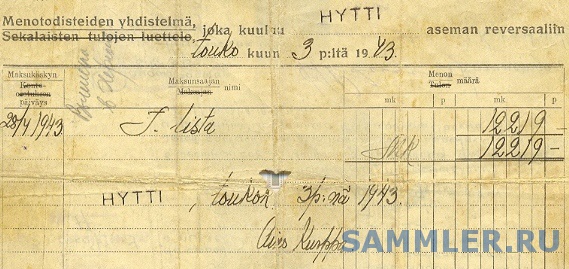 Menotodisteiden yhdistelmä,
Sekalaisten tulojen luettelo, joka kuuluu HYTTI aseman reversaaliin
touko kuun 3 p:ltä 1943.
Maksukäskyn päiväys
Maksunsaajan nimi
Menon määrä
Tulon
mk p mk p
28/4 1943 J. lista 12219 –
Smk 12219 –
HYTTI, toukok. 3 p:nä 1943.
SAMMLER.RU